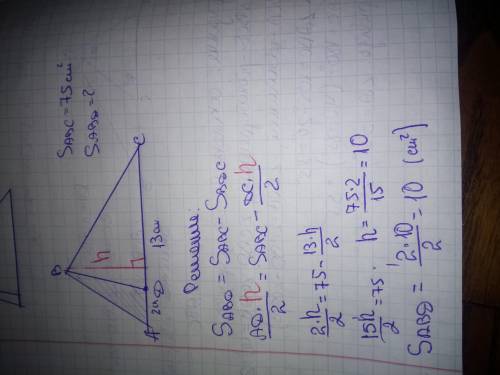 S_ABC = 75 cm²
S_ABD = ?
B
h
A 2см D 13см C
Решение:
S_ABD = S_ABC - S_BDC
AD·h/2 = S_ABC - DC·h/2
2·h/2 = 75 - 13·h/2
15h/2 = 75. h = 75·2/15 = 10
S_ABD = 2·10/2 = 10 (cm²)